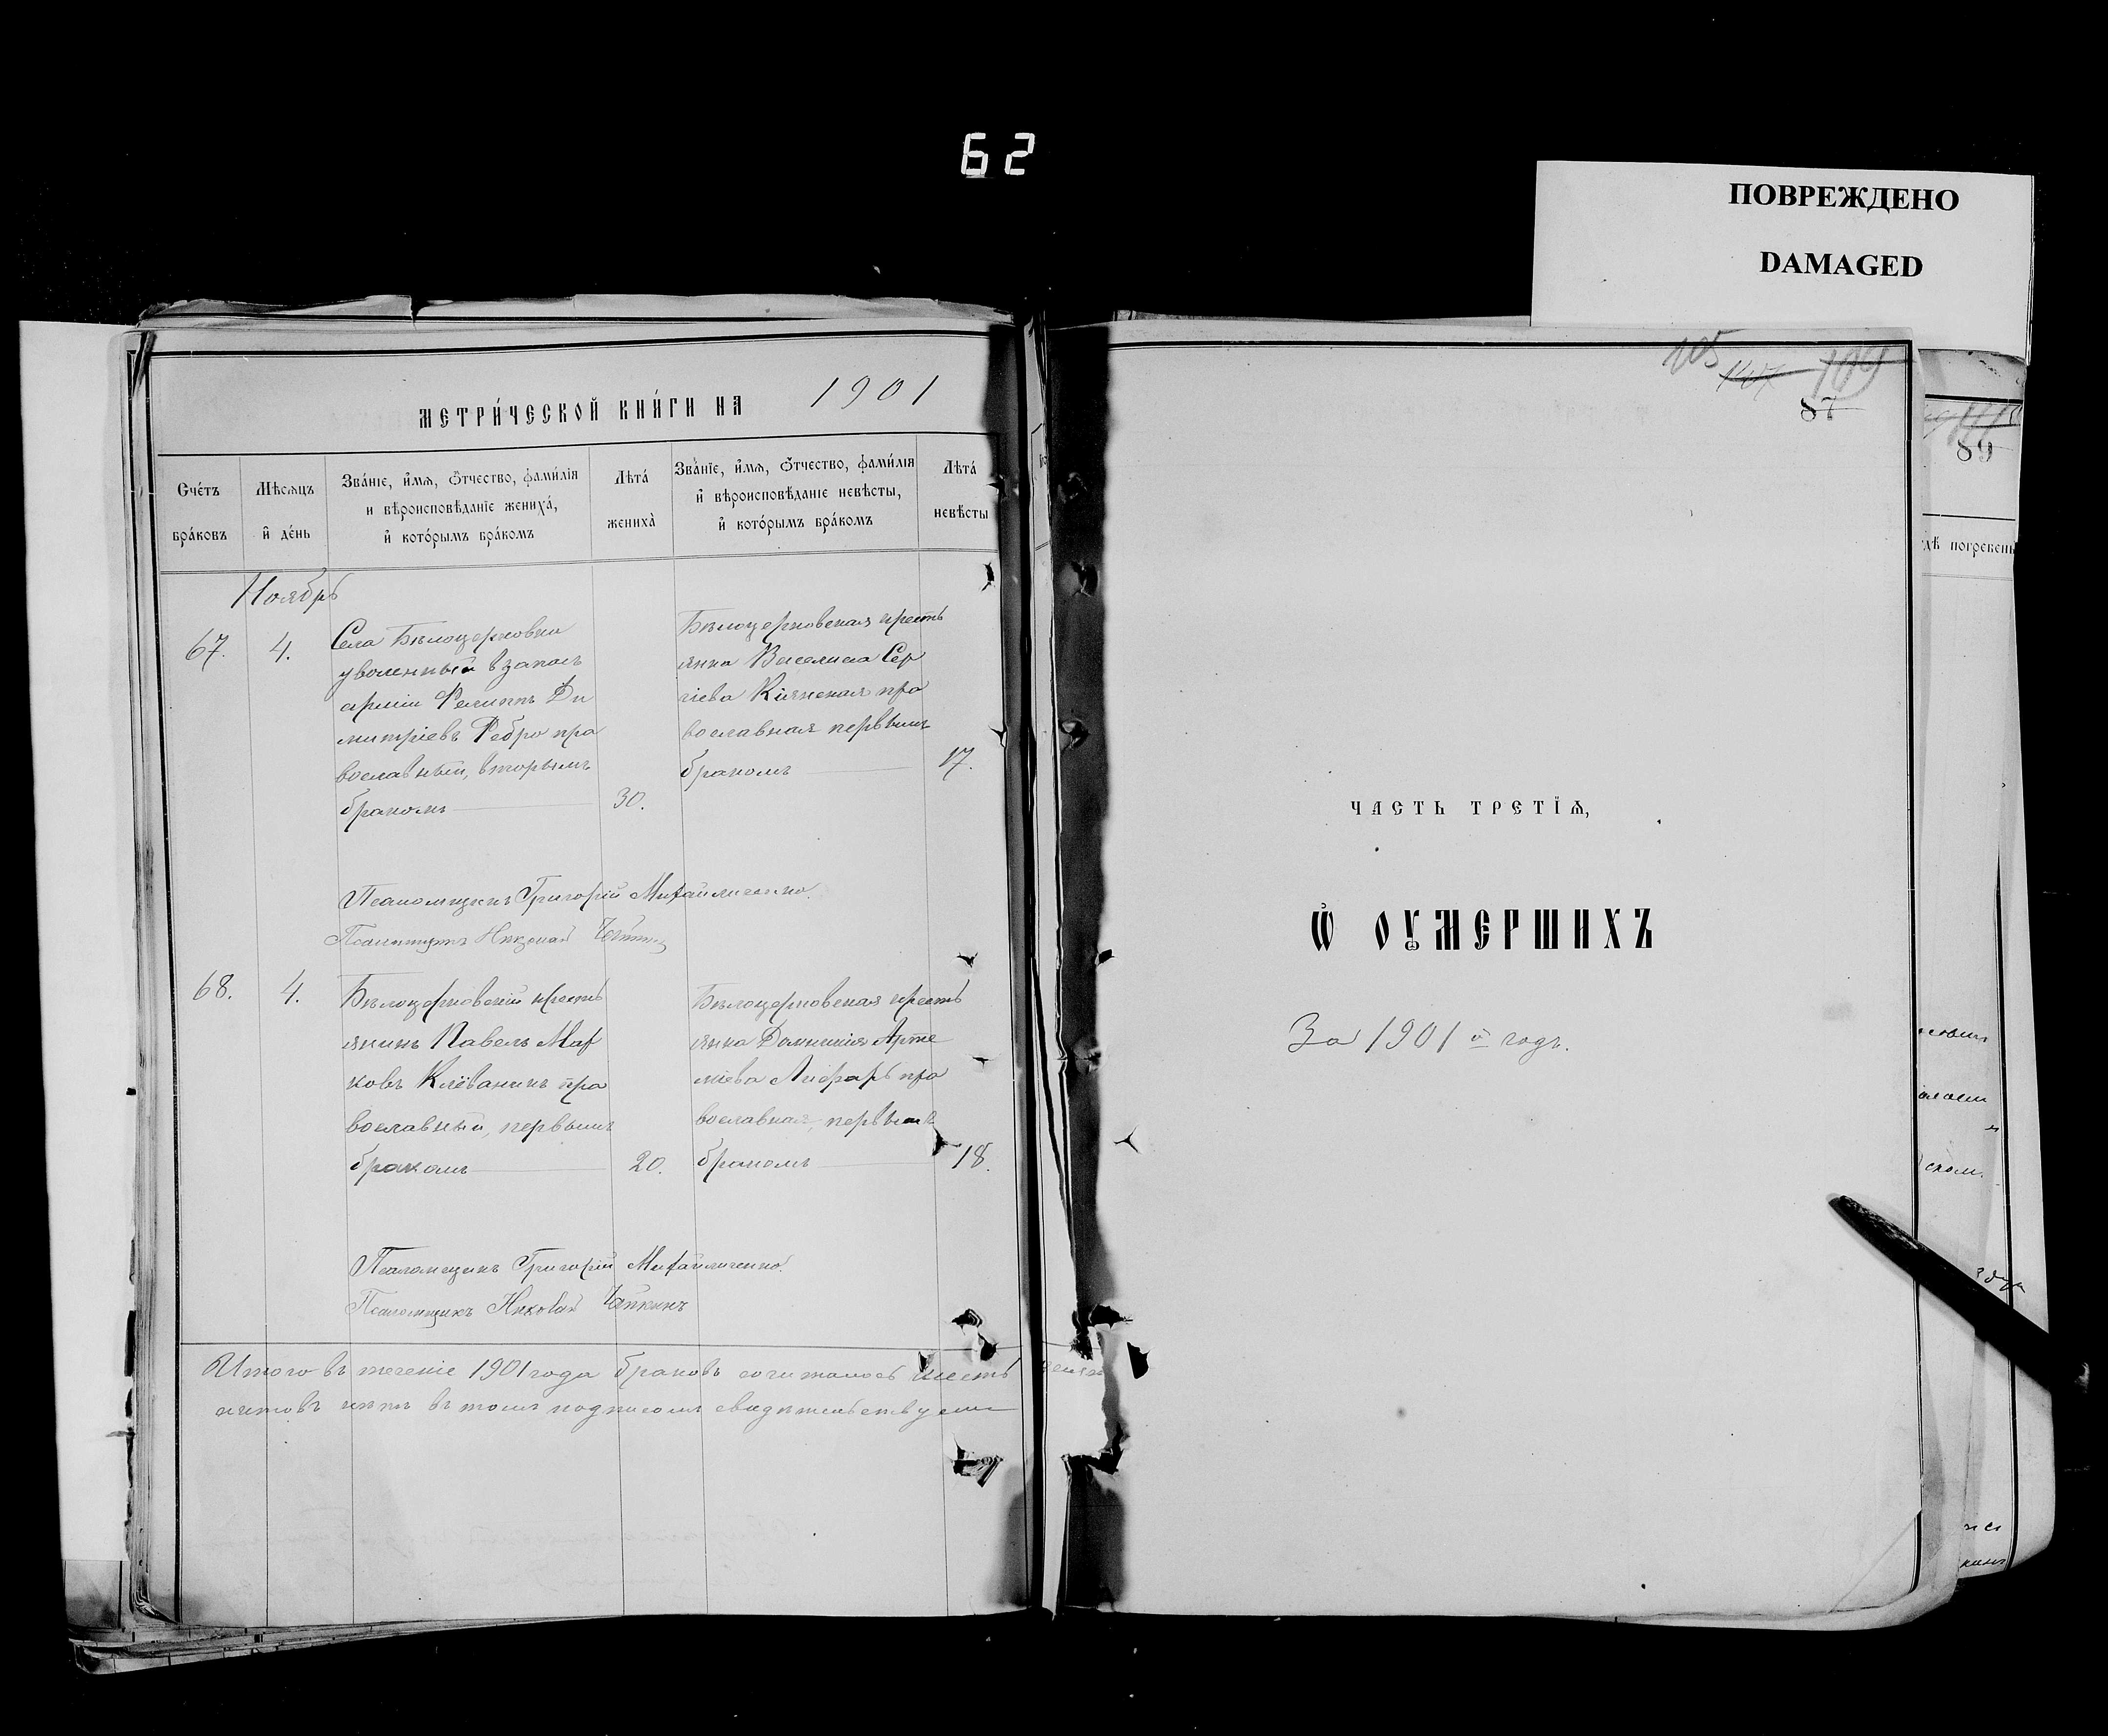 62
ПОВРЕЖДЕНО
DAMAGED
МЕТРИ́ЧЕСКОЙ КНИ́ГИ НА 1901
Сче́тъ бра́ковъ
Мѣсяцъ и҆ де́нь
Зва́нїе, и҆́мѧ, ѻ҆́тчество, фами́лїѧ
и вѣроисповѣ́данїе жениха̀,
и҆ кото́рымъ бра́комъ
Лѣта̀ жениха̀
Зва́нїе, и҆́мѧ, ѻ҆́тчество, фами́лїѧ
и҆ вѣроисповѣ́данїе невѣ́сты,
и҆ кото́рымъ бра́комъ
Лѣта̀ невѣ́сты
Ноябрь
67. 4.
Села Бѣлоцерковки
уволенный в запасъ
арміи Филиппъ Ди
митріевъ Ребро пра
вославный, вторымъ
бракомъ 30.
Бѣлоцерковская кресть
янка Василиса Сер
гіева Кіянская пра
вославная первымъ
бракомъ 17.
Псаломщикъ Григорій Михайличенко.
Псаломщикъ Николай
68. 4.
Бѣлоцерковскій кресть
янинъ Павелъ Мар
ковъ пра
вославный, первымъ
бракомъ 20.
Бѣлоцерковская кресть
янка Домникія Арте
міева пра
вославная, первымъ
бракомъ 18.
Псаломщикъ Григорій Михайличенко.
Псаломщикъ Николай Чапкинъ
Итого въ теченіе 1901 года браковъ сочиталось шесть
въ томъ подписомъ свидѣтельствуемъ
105 107 109
87
ЧАСТЬ ТРЕТЇѦ,
Ѽ ОУМЕРШИХЪ
За 1901й годъ.
89
дѣ погребенъ